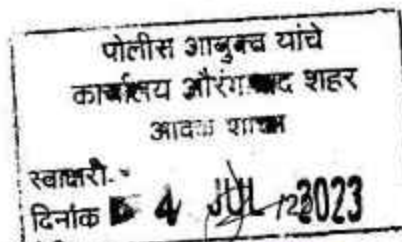 पोलीस आयुक्त यांचे
कार्यालय औरंगाबाद शहर
आवक शाखा
स्वाक्षरी.-
दिनांक 4 JUL 2023